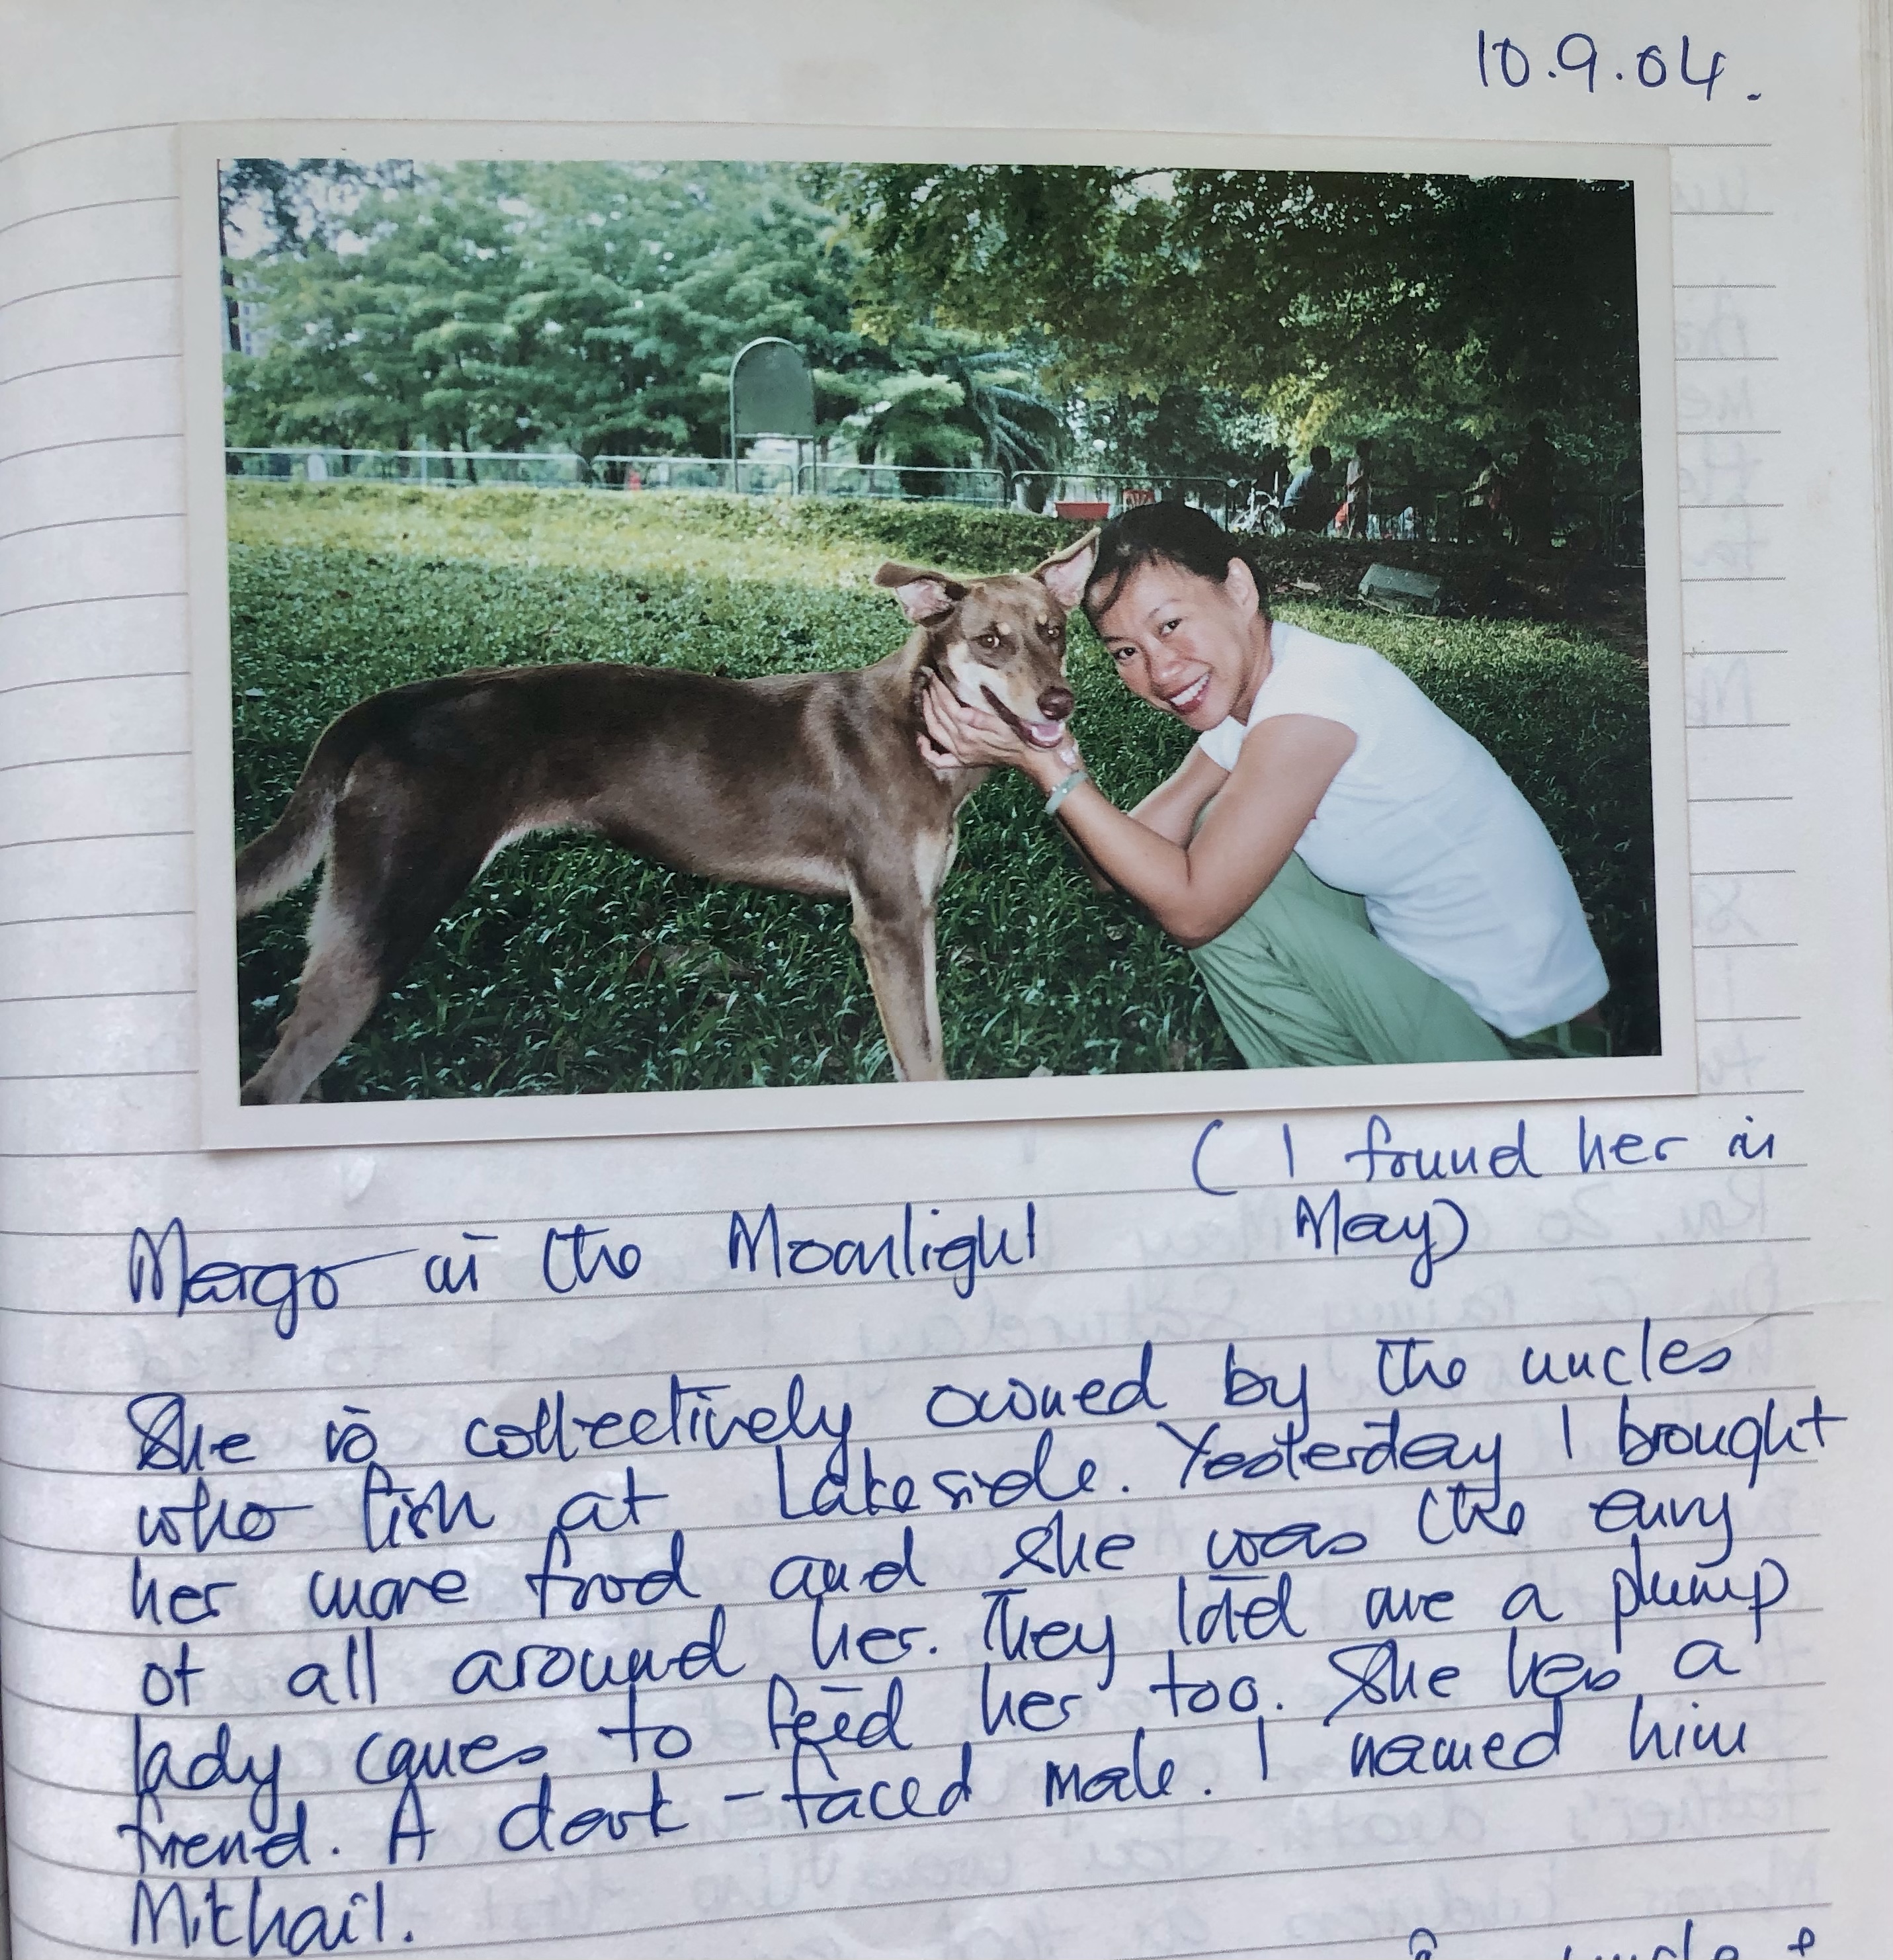 10.9.04.
( I found her in
May)
Margo in the Moonlight
She is collectively owned by the uncles
who fish at Lakeside. Yesterday I brought
her more food and she was the envy
of all around her. They told me a plump
lady comes to feed her too. She has a
friend. A dark-faced male. I named him
Mikhail.
uncle &